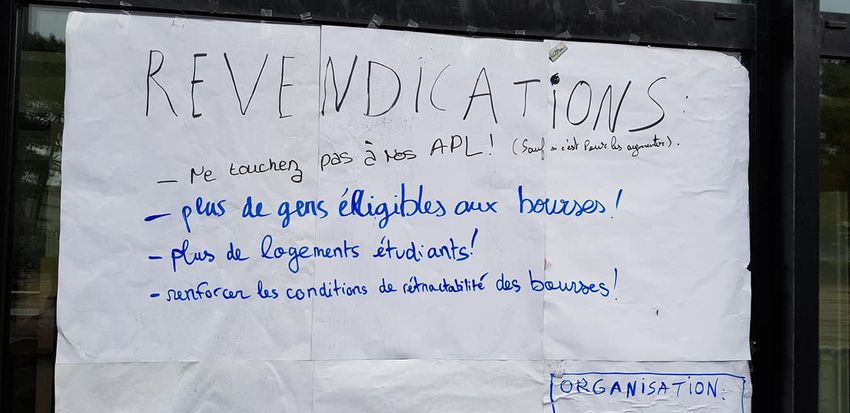 REVENDICATIONS :
- Ne touchez pas à nos APL! (Sauf si c'est Pour les augmenter).
- plus de gens élligibles aux bourses!
- plus de logements étudiants!
- renforcer les conditions de rétractabilité des bourses!
ORGANISATION: